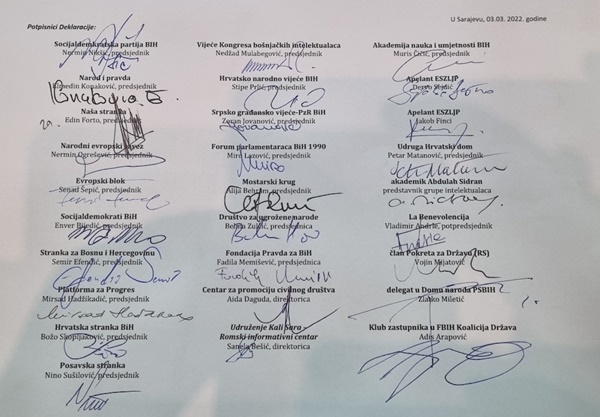 U Sarajevu, 03.03. 2022. godine
Potpisnici Deklaracije:
Socijaldemokratska partija BIH
Nermin Nikšić, predsjednik
Narod i pravda
Elmedin Konaković, predsjednik
Naša stranka
Edin Forto, predsjednik
Narodni evropski savez
Nermin Ogrešević, predsjednik
Evropski blok
Senad Šepić, predsjednik
Socijaldemokrati BiH
Enver Bijedić, predsjednik
Stranka za Bosnu i Hercegovinu
Semir Efendić, predsjednik
Platforma za Progres
Mirsad Hadžikadić, predsjednik
Hrvatska stranka BiH
Božo Skopljaković, predsjednik
Posavska stranka
Nino Sušilović, predsjednik
Vijeće Kongresa bošnjačkih intelektualaca
Nedžad Mulabegović, predsjednik
Hrvatsko narodno vijeće BIH
Stipe Prlić, predsjednik
Srpsko građansko vijeće-PzR BiH
Zoran Jovanović, predsjednik
Forum parlamentaraca BiH 1990
Miro Lazović, predsjednik
Mostarski krug
Alija Behram, predsjednik
Društvo za ugrožene narode
Belma Zulkić, predsjednik
Fondacija Pravda za BiH
Fadila Memišević, predsjednik
Centar za promociju civilnog društva
Aida Daguda, direktorica
Udruženje Kali Sara –
Romski informativni centar
Sanela Bešić, direktorica
Akademija nauka i umjetnosti BIH
Muris Čičić, predsjednik
Apelant ESZLJP
Dervo Sejdić
Apelant ESZLJP
Jakob Finci
Udruga Hrvatski dom
Petar Matanović, predsjednik
akademik Abdulah Sidran
predstavnik grupe intelektualaca
La Benevolencija
Vladimir Andrle, potpredsjednik
član Pokreta za Državu (RS)
Vojin Mijatović
delegat u Domu naroda PSBIH
Zlatko Miletić
Klub zastupnika u FBIH Koalicija Država
Adis Arapović